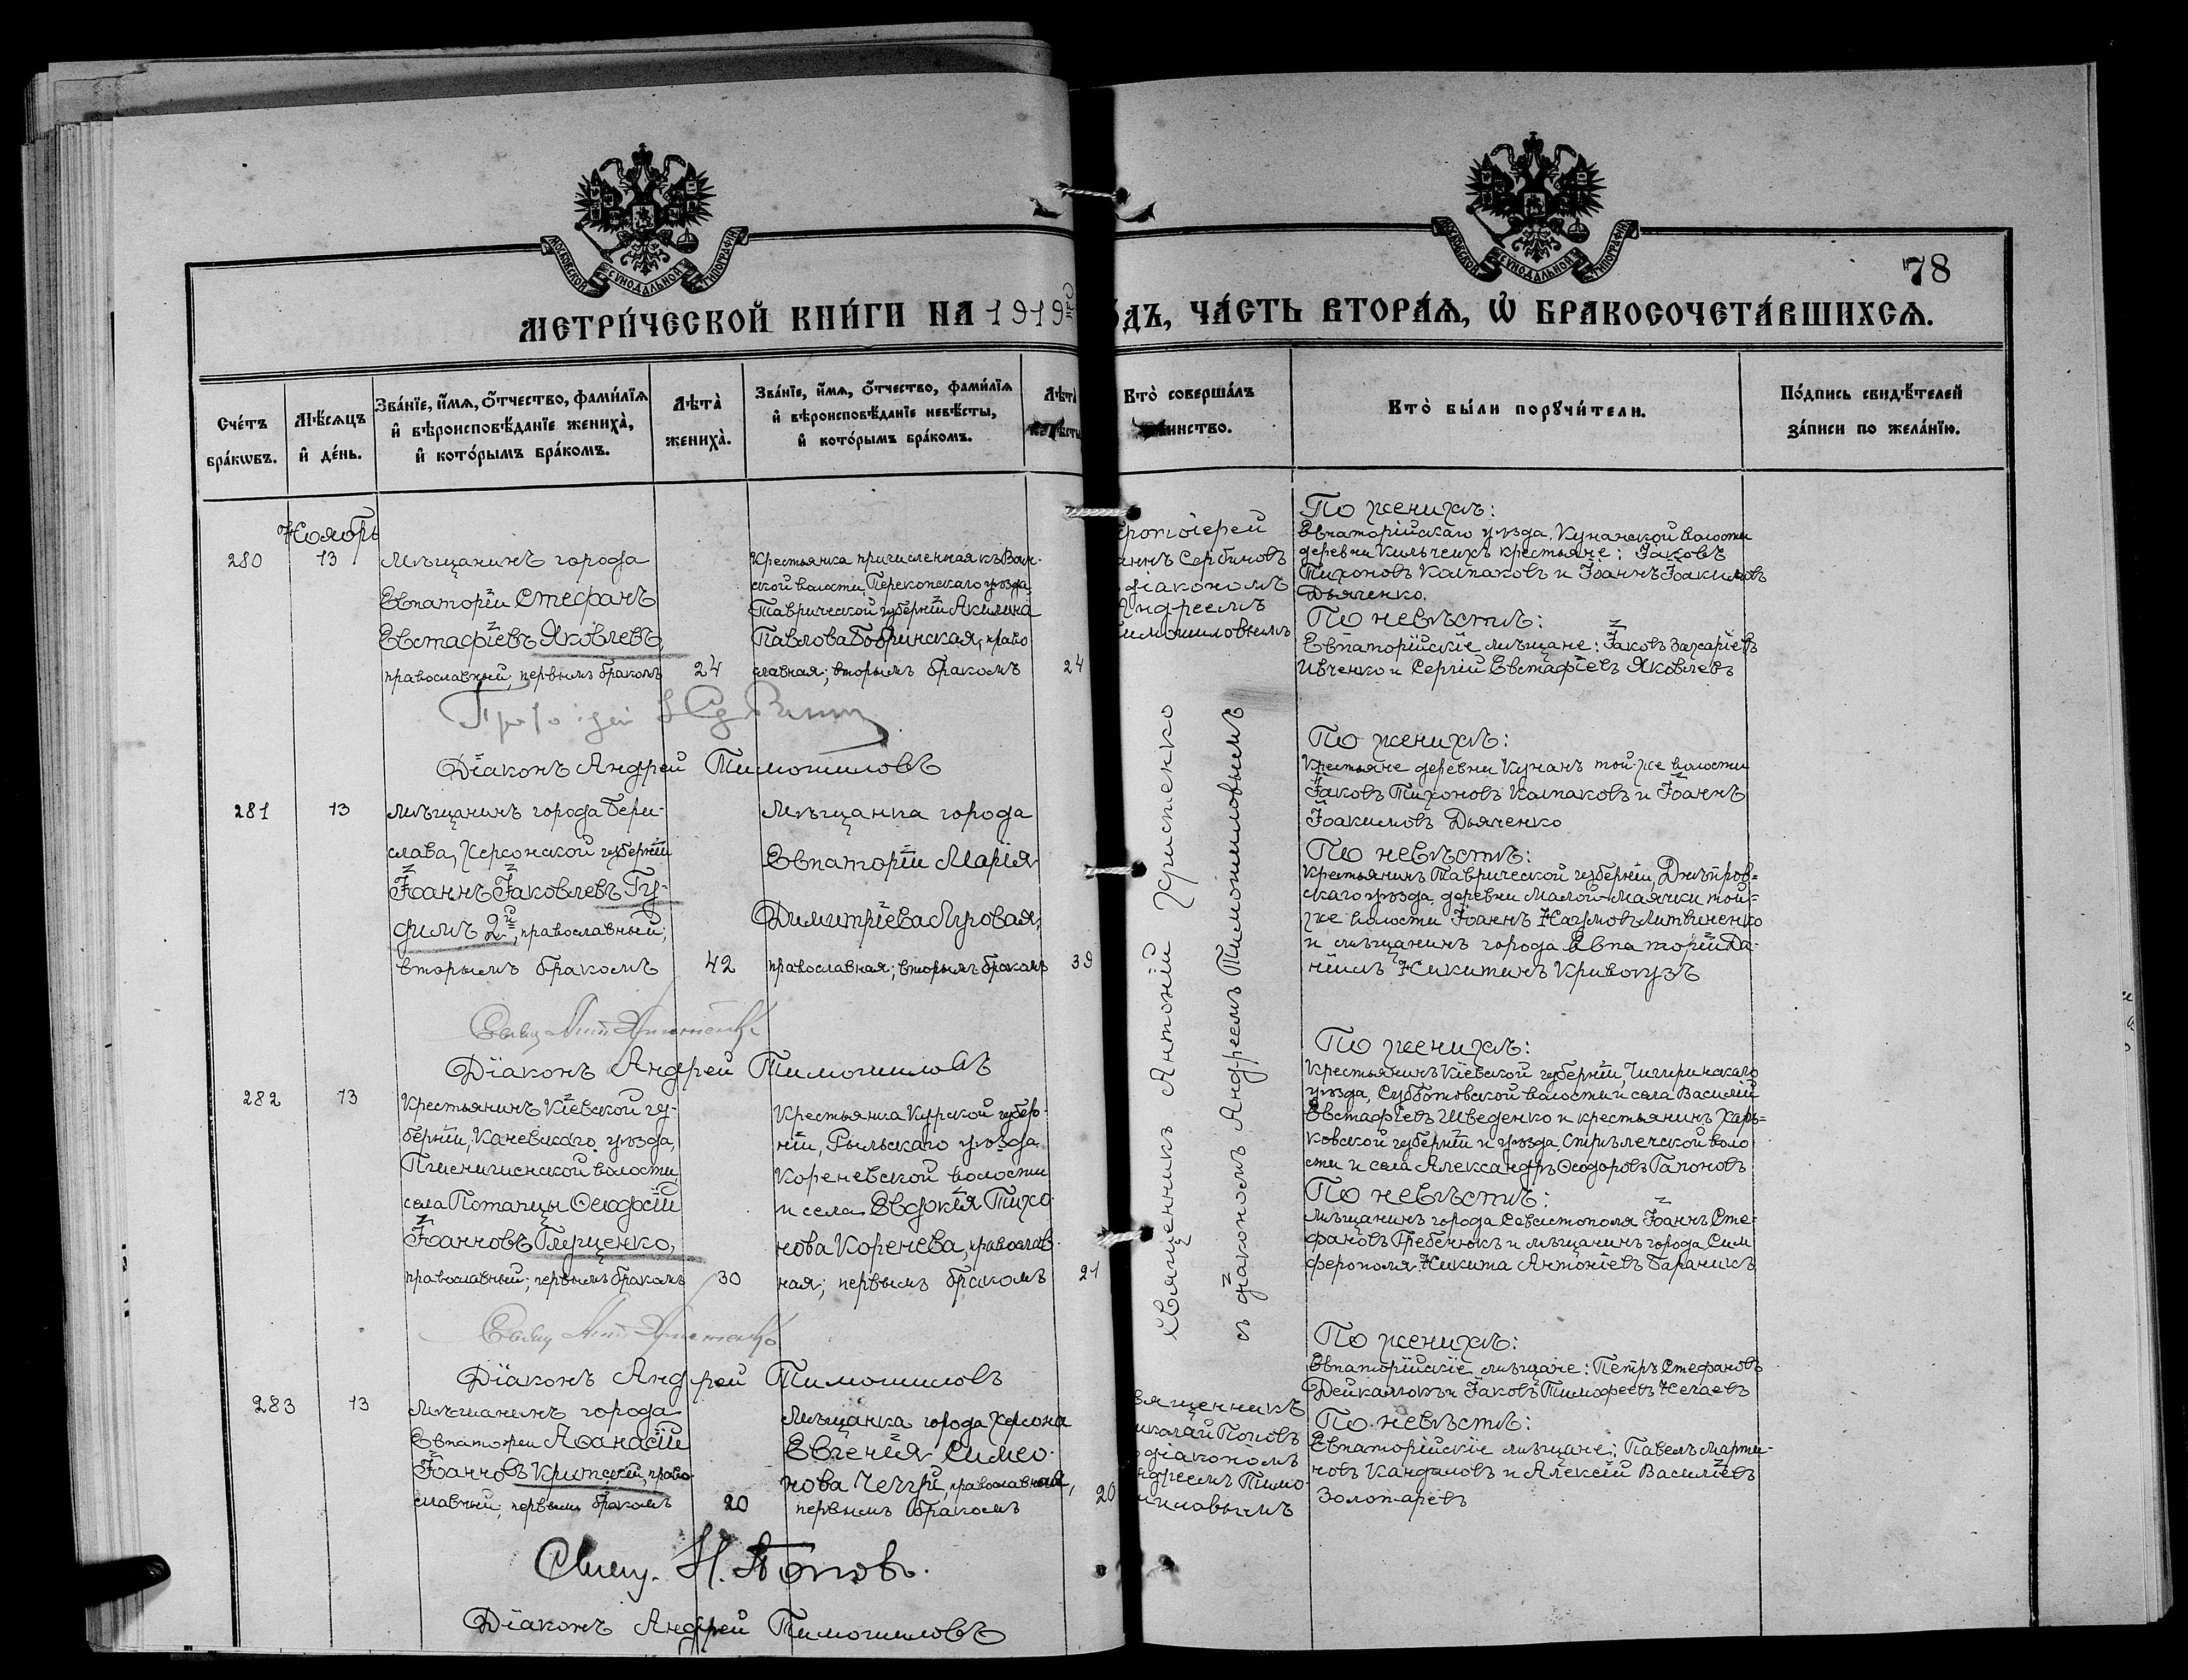 МОСКОВСКОЙ СУНОДАЛЬНОЙ ТИПОГРАФІИ
МОСКОВСКОЙ СУНОДАЛЬНОЙ ТИПОГРАФІИ
78
МЕТРИ́ЧЕСКОЙ КНИ́ГИ НА 1919й
о́дъ, ЧА́СТЬ ВТОРА́Ѧ, Ѽ БРАКОСОЧЕТА́ВШИХСѦ.
Сче́тъ бра́кѡвъ.
Мѣ́сѧцъ и҆ де́нь.
Зва́нїе, и҆́мѧ, ѻ҆́тчество, фами́лїѧ
и҆ вѣроисповѣ́данїе жениха̀,
и҆ кото́рымъ бра́комъ.
Лѣта̀
жениха̀.
Зва́нїе, и҆́мѧ, ѻ҆́тчество, фами́лїѧ
и҆ вѣроисповѣ́данїе невѣ́сты,
и҆ кото́рымъ бра́комъ.
Лѣта̀
Кто̀ соверша́лъ
инство.
Кто̀ бы́ли порꙋчи́тели.
По́дпись свидѣ́телей
за́писи по жела́нїю.
Ноябрь
280
13
Мѣщанинъ города
Евпаторіи Стефанъ
Евстафіевъ Яковлевъ,
православный, первымъ бракомъ
24
Крестьянка причисленная къ
ской волости, Перекопскаго уѣзда
Таврической губерніи Акилина
Павлова Бобринская, право
славная; вторымъ бракомъ
24
ротоіерей
аннъ Сербиновъ
діакономъ
Андреемъ
имошиловымъ
По женихѣ:
Евпаторійскаго уѣзда, Кунанской волости
деревни Кильчихъ крестьяне: Іаковъ
Тихоновъ Колпаковъ и Іоаннъ Іоакимовъ
Дьяченко.
По невѣстѣ:
Евпаторійскіе мѣщане: Іаковъ Захаріевъ
Ивченко и Сергій Евстафіевъ Яковлевъ
Діаконъ Андрей Тимошиловъ
281
13
Мѣщанинъ города Бери-
слава, Херсонской губерніи
Іоаннъ Іаковлевъ Гу-
димъ 2й, православный;
вторымъ бракомъ
42
Мѣщанка города
Евпаторіи Марія
Димитріева Луговая,
православная; вторымъ бракомъ
39
Священникъ Антоній Христенко
съ діакономъ Андреемъ Тимошиловымъ
По женихѣ:
Крестьяне деревни Кунанъ той-же волости
Іаковъ Тихоновъ Колпаковъ и Іоаннъ
Іоакимовъ Дьяченко
По невѣстѣ:
Крестьянинъ Таврической губерніи, Днѣпров=
скаго уѣзда, деревни Малой-Маячки той=
же волости Іоаннъ Наумовъ Литвиненко
и мѣщанинъ города Евпаторіи Да-
ніилъ Никитинъ Кривогузъ
Діаконъ Андрей Тимошиловъ
282
13
Крестьянинъ Кіевской гу-
берніи, Каневскаго уѣзда,
Пшеничненской волости,
села Потапцы Ѳеодосій
Іоанновъ Глущенко,
православный; первымъ бракомъ
30
Крестьянка Курской губер-
ніи, Рыльскаго уѣзда
Кореневской волости
и села Евдокія Тихо-
нова Коренева, православ-
ная; первымъ бракомъ
21
По женихѣ:
Крестьянинъ Кіевской губерніи, Чигиринскаго
уѣзда, Субботовской волости и села Василій
Евстафіевъ Шведенко и крестьянинъ Харь=
ковской губерніи и уѣзда, Стрѣлечской воло
сти и села Александръ Ѳеодоровъ Гапоновъ
По невѣстѣ:
Мѣщанинъ города Севастополя Іоаннъ Сте=
фановъ Гребенюкъ и мѣщанинъ города Сим
ферополя Никита Антоніевъ Бараникъ
Діаконъ Андрей Тимошиловъ
283
13
Мѣщанинъ города
Евпатории Аѳанасій
Іоанновъ Критскій, право-
славный, первымъ бракомъ
20
Мѣщанка города Херсона
Евгенія Симео-
нова, православная,
первымъ бракомъ
20
вященникъ
иколай Поповъ
діакономъ
ндреемъ Тимо-
шиловымъ
По женихѣ:
Евпаторійскіе мѣщане: Петръ Стефановъ
Дейкалюкъ и Іаковъ Тимофеевъ Нечаевъ
По невѣстѣ:
Евпаторійскіе мѣщане: Павелъ Марти-
новъ Кандаловъ и Алексій Василіевъ
Золотаревъ
Свящ. Н. Поповъ.
Діаконъ Андрей Тимошиловъ